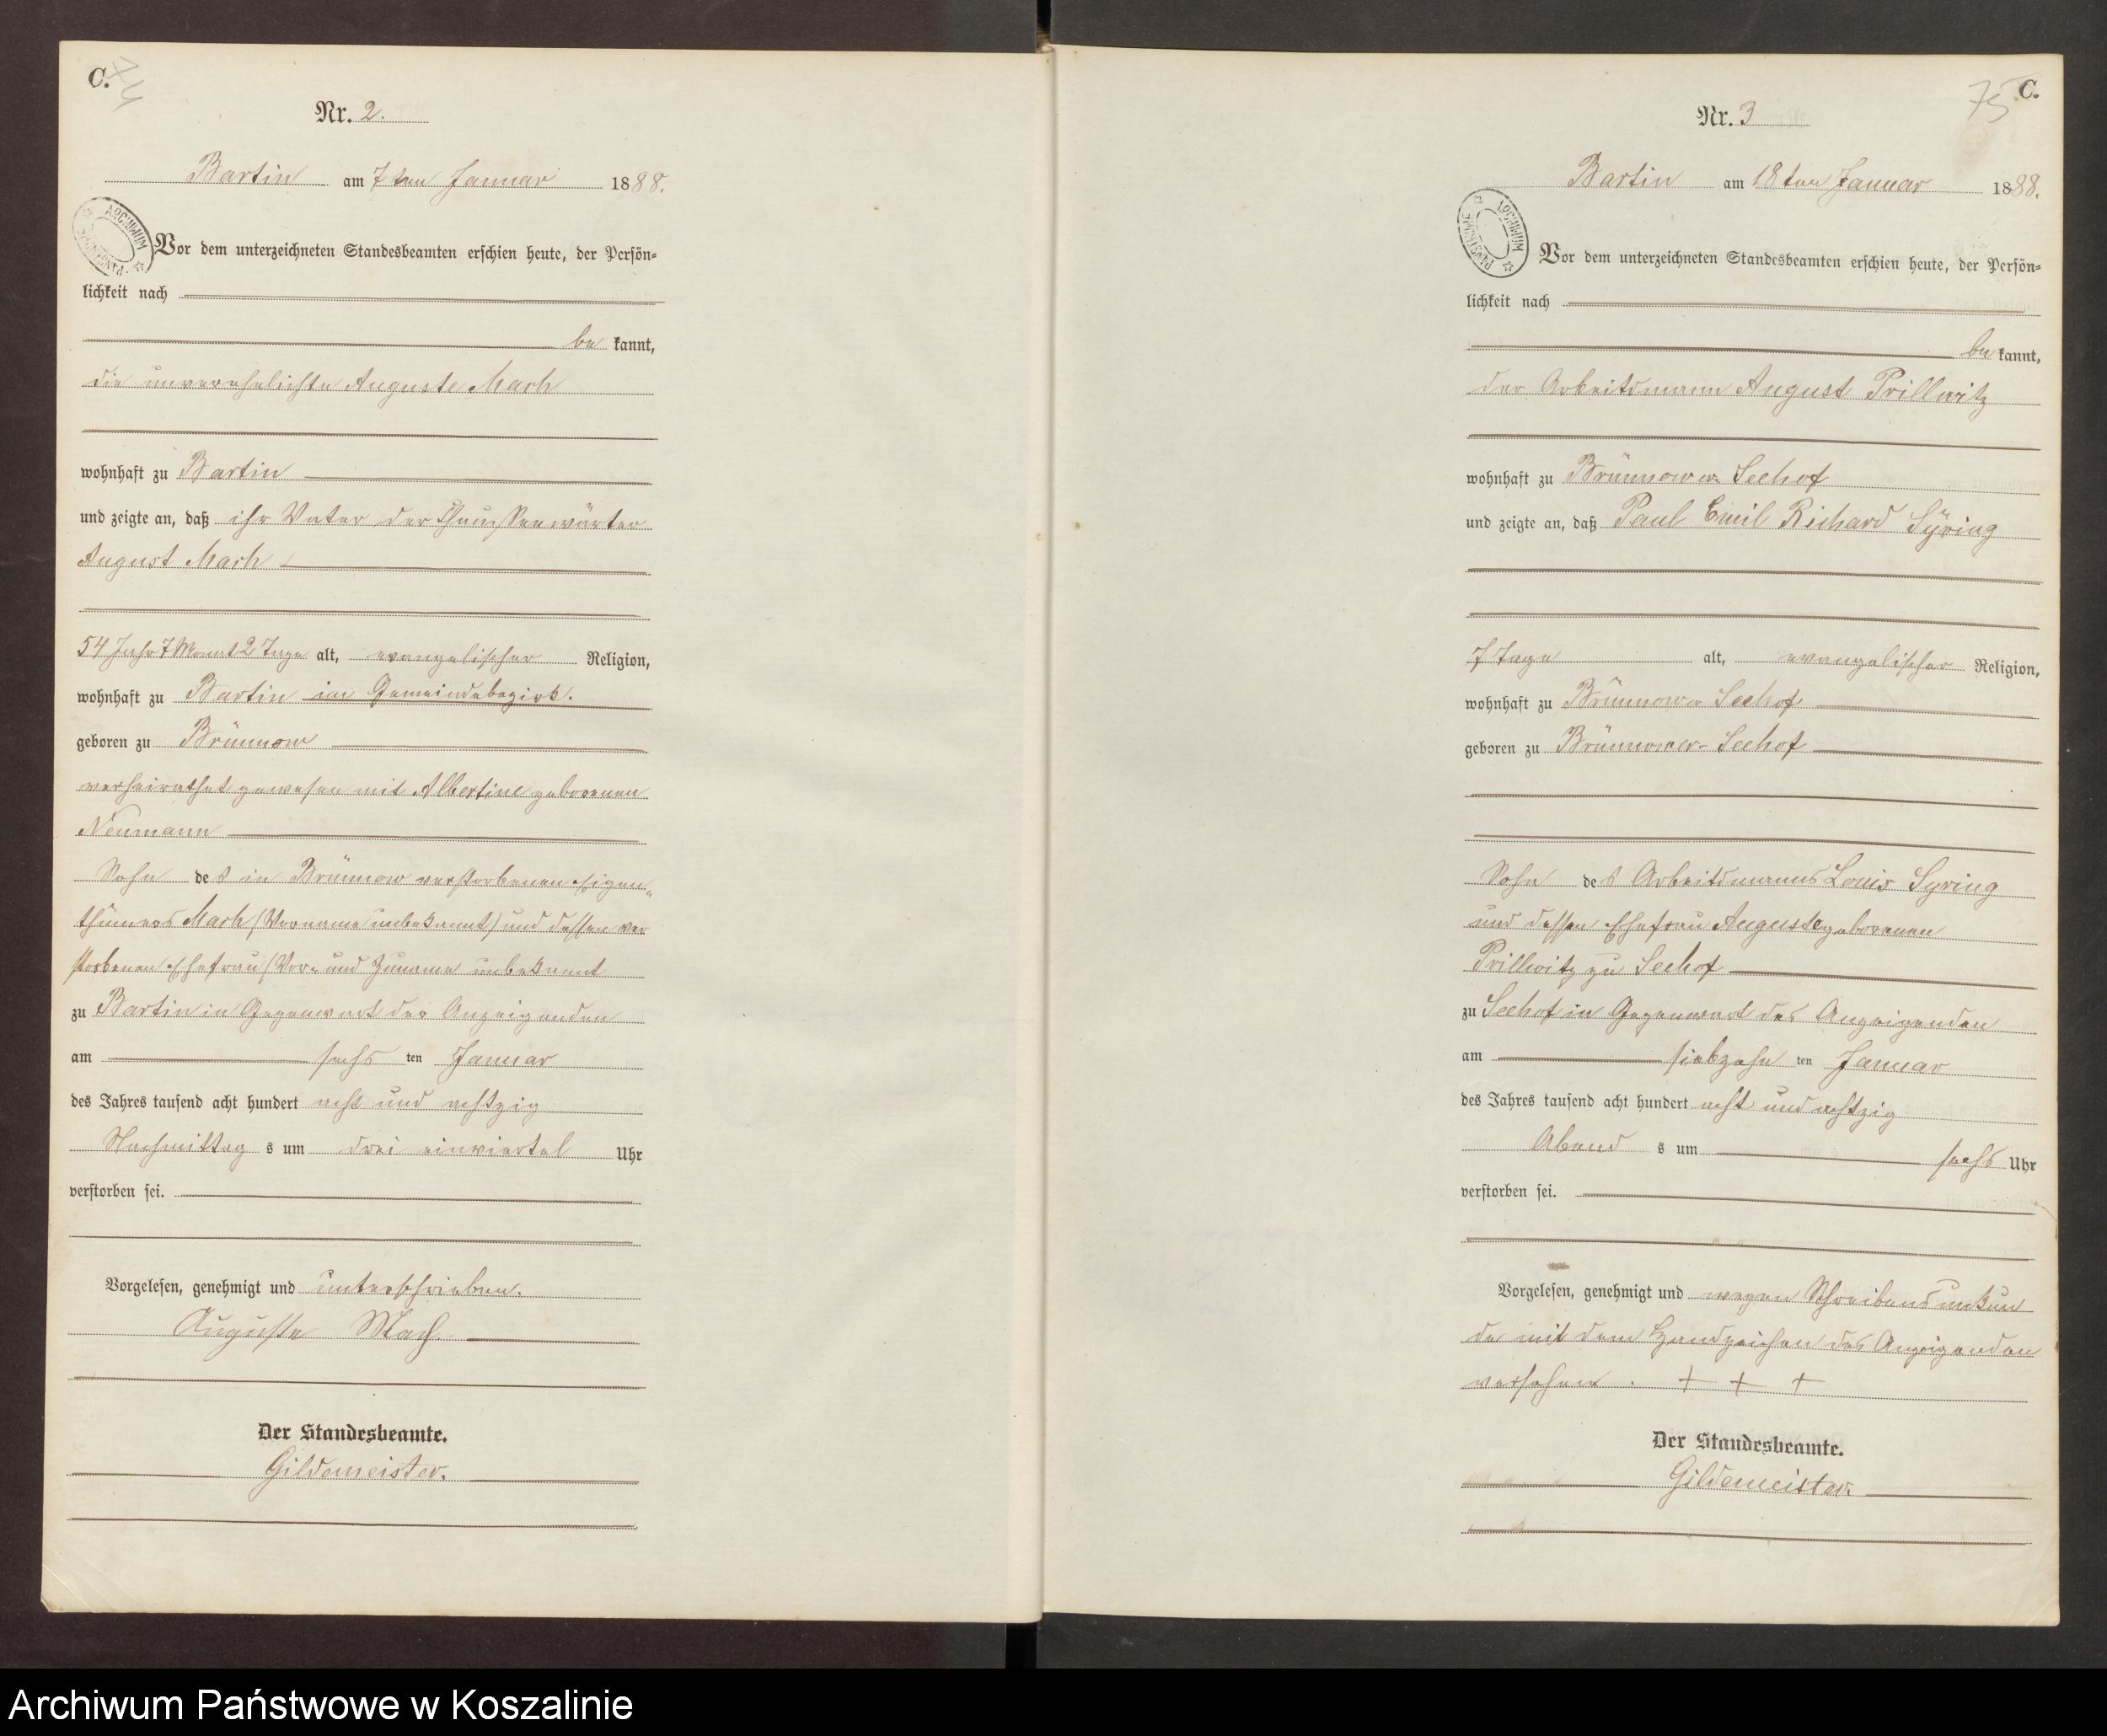 C.
74
Nr. 2.
Bartin am 7ten Januar 1888.
ARCHIWUM PAŃSTWOWE
Vor dem unterzeichneten Standesbeamten erschien heute, der Persön=
lichkeit nach
be kannt,
die unverehelichte Auguste Mach
wohnhaft zu Bartin
und zeigte an, daß ihr Vater der Chausseewärter
August Mach
54 Jahr 7 Monat 2 Tage alt, evangelischer Religion,
wohnhaft zu Bartin im Gemeindebezirk.
geboren zu Brünnow
verheirathet gewesen mit Albertine geborenen
Neumann
Sohn des in Brünnow verstorbenen Eigen„
thümers Mach (Vorname unbekannt) und dessen ver
storbenen Ehefrau (Vor= und Zuname unbekannt
zu Bartin in Gegenwart der Anzeigenden
am sechs ten Januar
des Jahres tausend acht hundert acht und achtzig
Nachmittag s um drei einviertel Uhr
verstorben sei.
Vorgelesen, genehmigt und unterschrieben.
Auguste Mach
Der Standesbeamte.
Gildemeister.
C.
75
Nr. 3
Bartin am 18ten Januar 1888.
ARCHIWUM PAŃSTWOWE
Vor dem unterzeichneten Standesbeamten erschien heute, der Persön=
lichkeit nach
be kannt,
der Arbeitsmann August Prillwitz
wohnhaft zu Brünnower Seehof
und zeigte an, daß Paul Emil Richard Syring
7 Tage alt, evangelischer Religion,
wohnhaft zu Brünnower Seehof
geboren zu Brünnower- Seehof
Sohn des Arbeitsmanns Louis Syring
und dessen Ehefrau Auguste geborenen
Prillwitz zu Seehof
zu Seehof in Gegenwart des Anzeigenden
am siebzehn ten Januar
des Jahres tausend acht hundert acht und achtzig
Abend s um sechs Uhr
verstorben sei.
Vorgelesen, genehmigt und wegen Schreibensunkun
de mit dem Handzeichen des Anzeigenden
versehen. + + +
Der Standesbeamte.
Gildemeister.
Archiwum Państwowe w Koszalinie